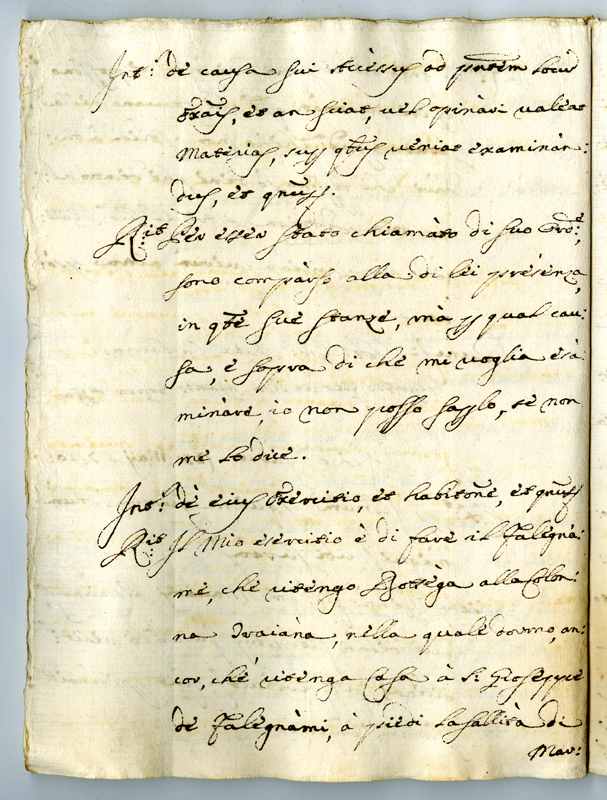 Int.s de causa sui accessus ad pntem locum
Exais, et an sciat, vel opinari valeat
Materias, supr qbus veniat examinan:
dus, et qnus.
R.it Per esser stato chiamato di suo Orõe;
sono comparso alla di lei presenza,
in qte sue stanze, mà pr qual cau:
sa, e sopra di che mi voglia esa:
minare, io non posso saplo, se non
me lo dice.
Int.s de eius Exercitio, et habitõne, et qnus
R.it Il Mio esercitio è di fare il Falegna:
me, che ritengo Bottega alla Colon:
na Traiana, nella quale dormo, an:
cor, che ritenga Casa à S. Gioseppe
de Falegnami, à piedi la sallita di
Mar: